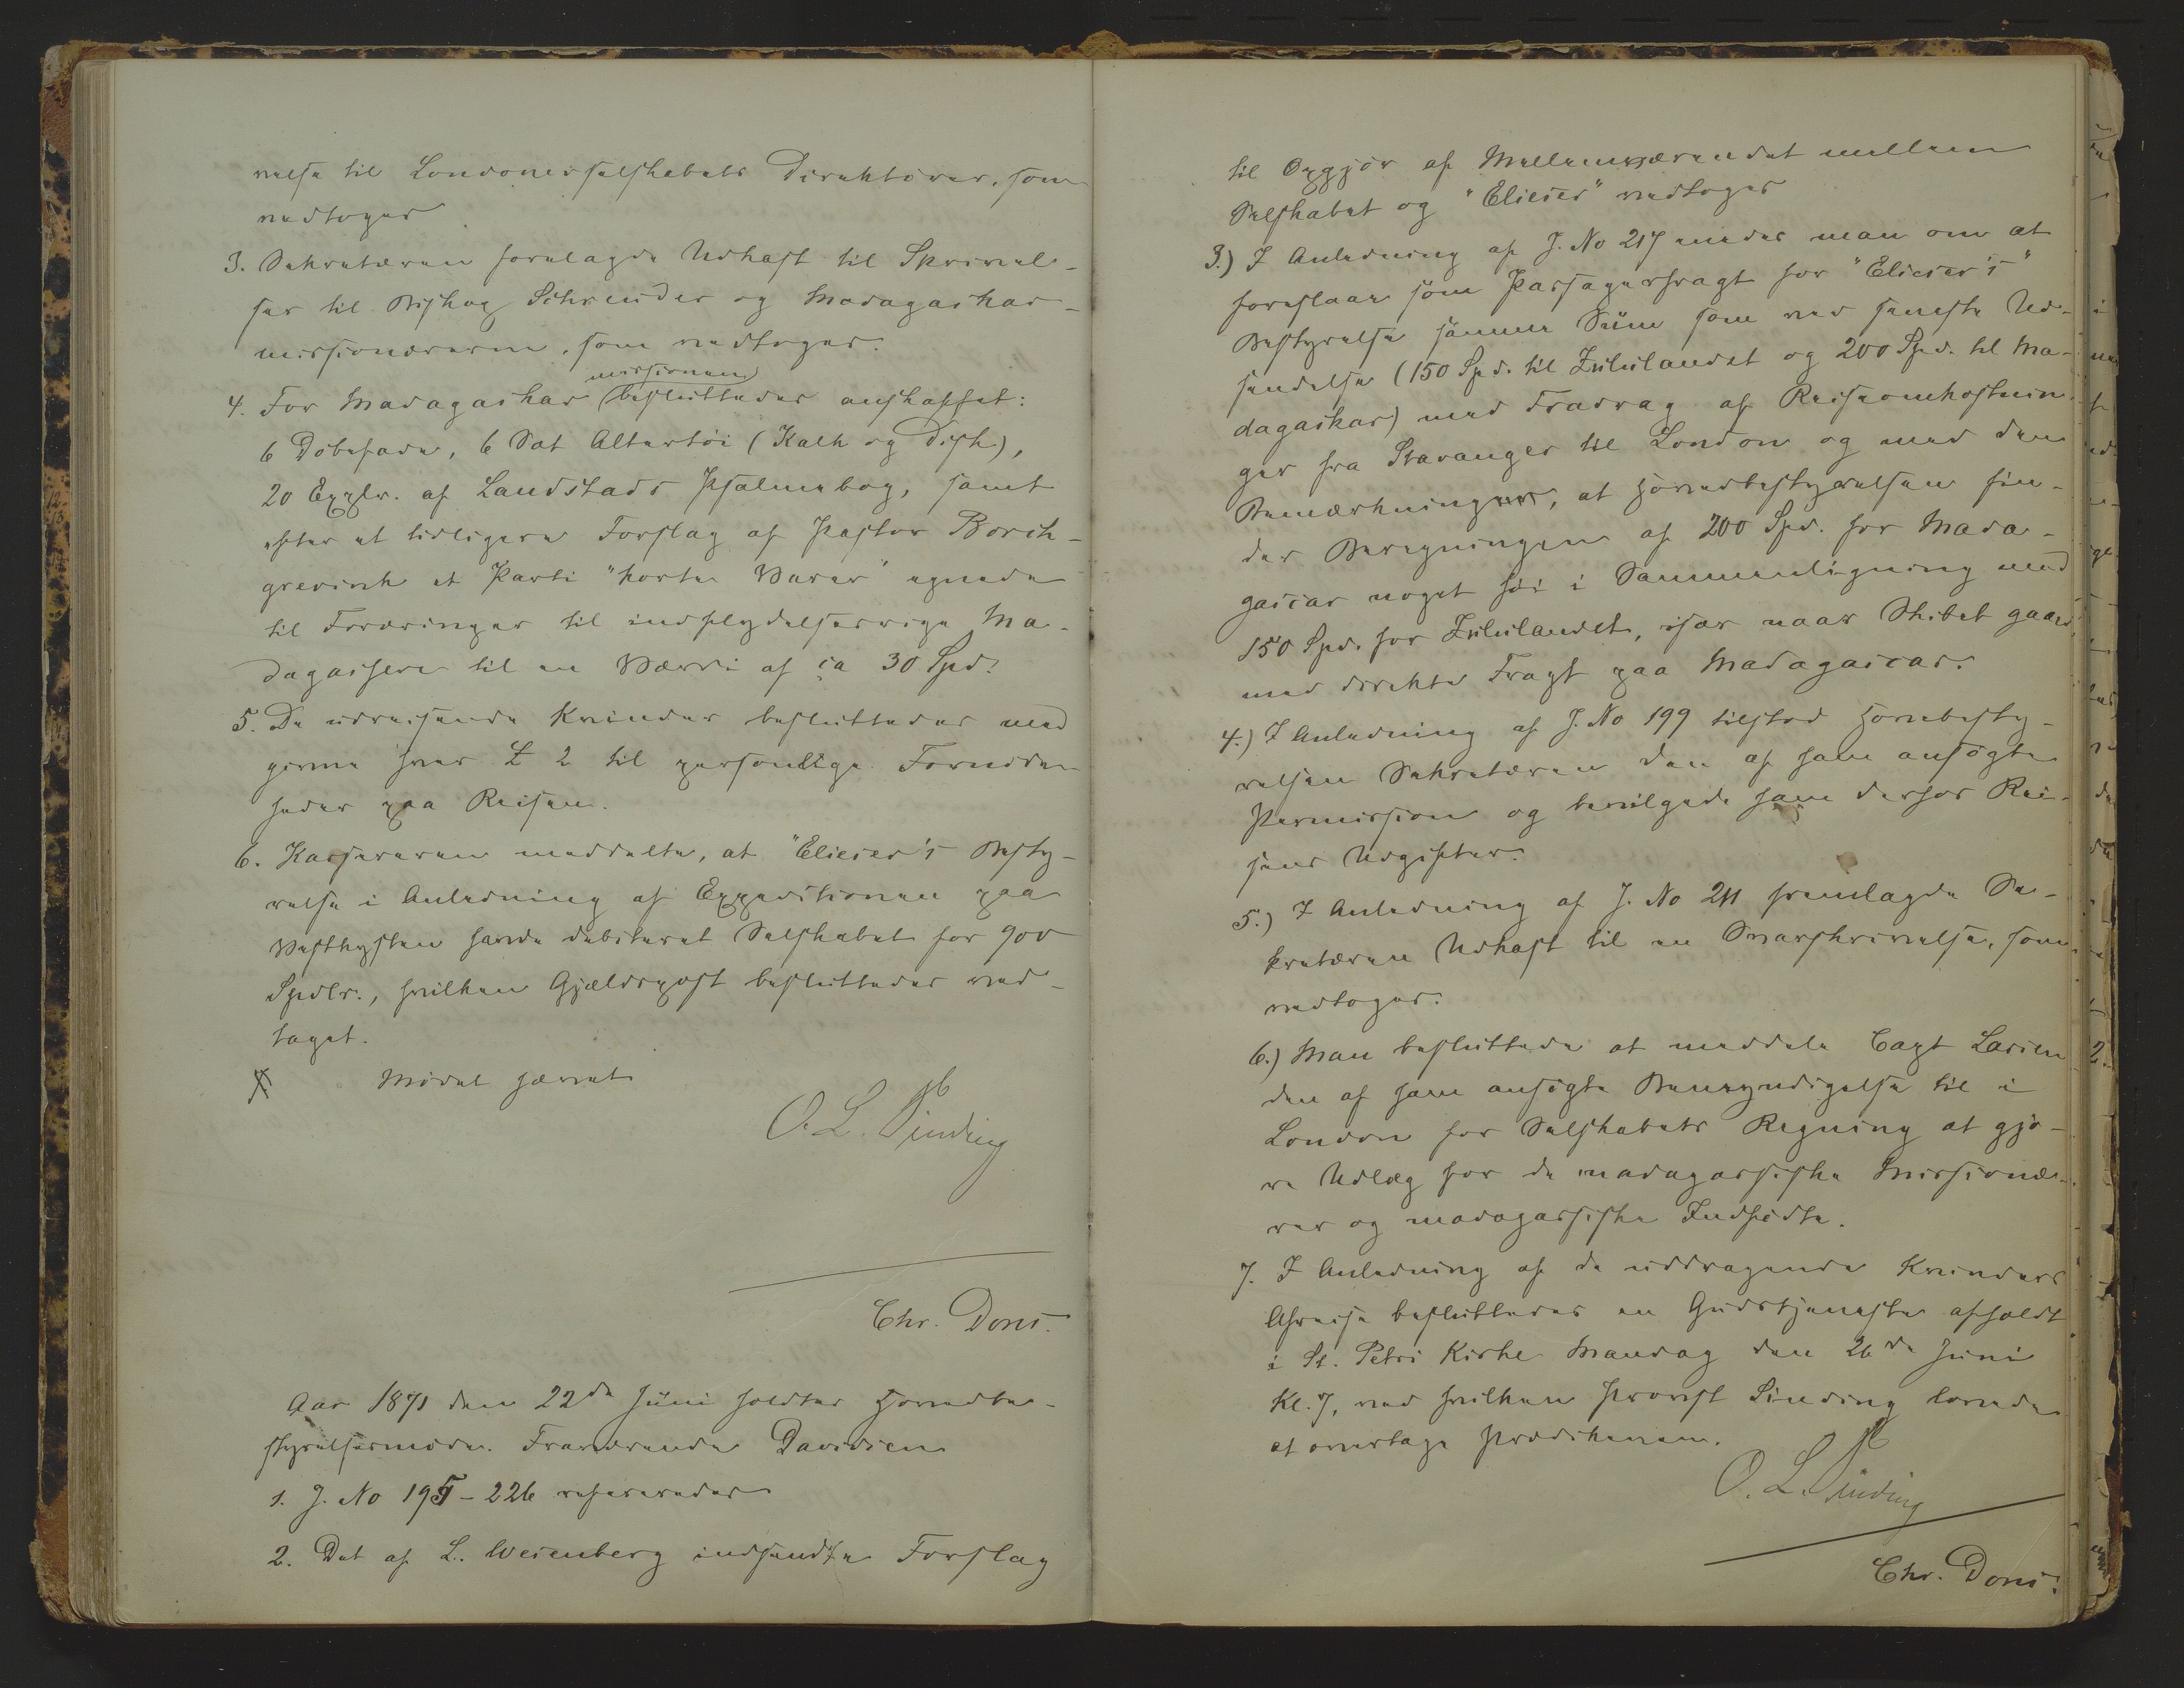 velse til Londonerselskabets Direktører, som
vedtoges
3. Sekretæren forelagde Udkast til Skrivel-
ser til Biskop Schreuder og Madagaskar-
missionærerne, som vedtoges.
missionen
4. For Madagaskar besluttedes anskaffet:
6 Døbefade, 6 Sæt Altertøi (Kalk og Disk),
20 Explr. af Landstads Psalmebog, samt
efter et tidligere Forslag af Pastor Borch-
grevink et Parti "korte Varer" egnede
til Foræringer til indflydelsesrige Ma-
dagassere til en Værdi af ca 30 Spd.
5. De udreisende Kvinder besluttedes med
givne hver £ 2 til personlige Fornøden
heder paa Reisen.
6. Kassereren meddelte, at "Elieser's Besty-
relse i Anledning af Expeditionen paa
Vestkysten havde debiteret Selskabet for 900
Spdlr., hvilken Gjældspost besluttedes ved-
taget.
Mødet hævet
O. L. Sinding
Chr. Dons.
Aar 1871 den 22de Juni holdtes Hovedbe-
styrelsesmøde. Fraværende Davidsen
1. J. No 195-226 refereredes
2. Det af L. Wesenberg indsendte Forslag
til Opgjør af Mellemværendet mellem
Selskabet og "Elieser" vedtoges
3.) I Anledning af J. No 217 enedes man om at
foreslaae som Passagerfragt for "Elieser's"
Bestyrelse samme Sum som ved seneste Ud-
sendelse (150 Spd. til Zululandet og 200 Spd. til Ma-
dagaskar) med Fradrag af Reiseomkostnin
ger fra Stavanger til London og med den
Bemærkning, at Hovedbestyrelsen fin-
der Beregningen af 200 Spd. for Mada-
gascar noget høi i Sammenligning med
150 Spd. for Zululandet, især naar Skibet gaar
med direkte Fragt paa Madagascar.
4.) I Anledning af J. No 199 tilstod Hovebesty-
relsen Sekretæren den af ham ansøgte
Permission og bevilgede ham derhos Rei-
sens Udgifter.
5.) I Anledning af J. No 211 fremlagde Se-
kretæren Udkast til en Svarskrivelse, som
vedtoges.
6.) Man besluttede at meddele Capt Larsen
den af ham ansøgte Bemyndigelse til i
London for Selskabets Regning at gjø-
re Udlæg for de madagassiske Missionæ-
rer og madagassiske Indfødte.
7. I Anledning af de uddragende Kvinders
Afreise besluttedes en Gudstjeneste afholdt
i St. Petri Kirke Mandag den 26de Juni
Kl. 7, ved hvilken Provst Sinding lovede
at overtage Prædikenen.
O. L. Sinding
Chr. Dons.